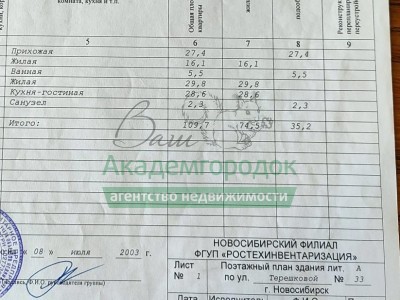 комната, кухня и т.п.
Общая пл
квартиры
жилая
подсоб
Реконструк
перепланир
переустрой
5 6 7 8 9
Прихожая 27,4 27,4
Жилая 16,1 16,1
Ванная 5,5 5,5
Жилая 29,8 29,8
Кухня-гостиная 28,6 28,6
Санузел 2,3 2,3
Итого: 109,7 74,5 35,2
Ваш
Академгородок
агентство недвижимости
« 08 » июля 2003 г.
Ф.И.О. руководителя группы)
НОВОСИБИРСКИЙ ФИЛИАЛ
ФГУП «РОСТЕХИНВЕНТАРИЗАЦИЯ»
Лист
№ 1
Поэтажный план здания лит. А
по ул. Терешковой № 33
г. Новосибирск
Дата Исполнитель